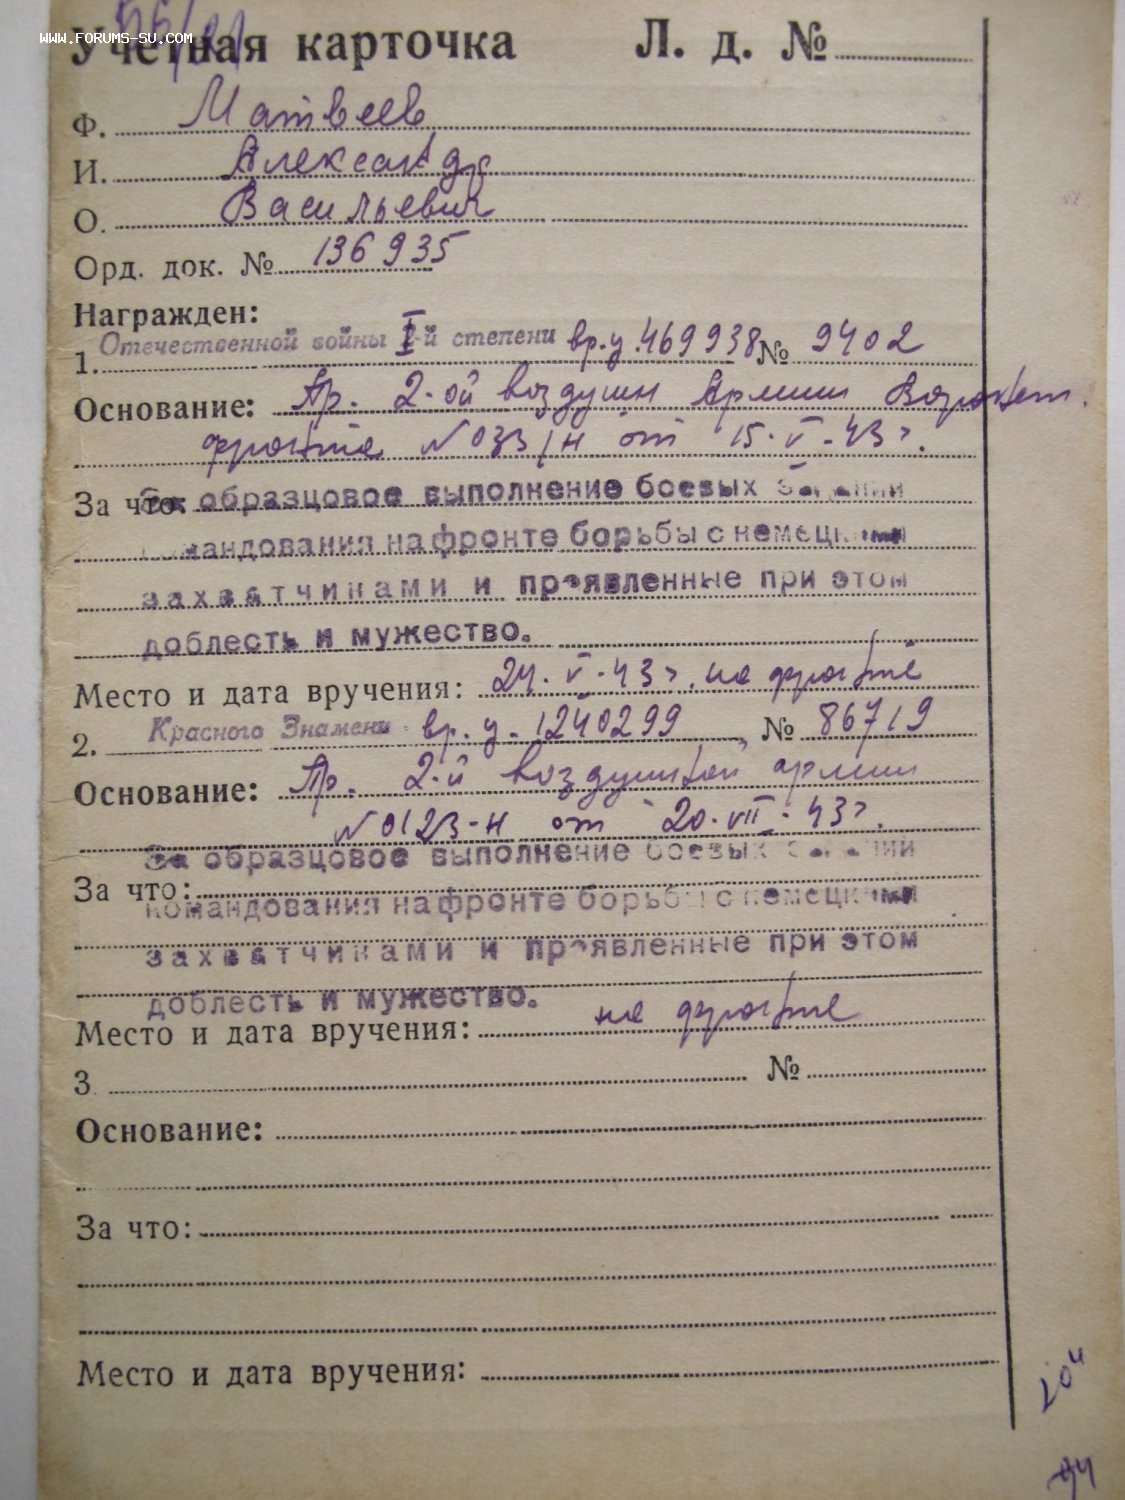 WWW.FORUMS-SU.COM
Учетная карточка Л. д. №
Ф. Матвеев
И. Александр
О. Васильевич
Орд. док. № 136935
Награжден:
1. Отечественной войны I-й степени вр.у.469938 № 9402
Основание: Пр. 2-ой воздушн Армии Воронежск.
фронта №033/н от 15.V.43г.
За что: За образцовое выполнение боевых заданий
командования на фронте борьбы с немецкими
захватчиками и проявленные при этом
доблесть и мужество.
Место и дата вручения: 24.V.43г. на фронте
2. Красного Знамени вр.у.1240299 № 86719
Основание: Пр. 2-й воздушной армии
№0123-н от 20.VII.43г.
За образцовое выполнение боевых заданий
За что:
командования на фронте борьбы с немецкими
захватчиками и проявленные при этом
доблесть и мужество.
Место и дата вручения: на фронте
3. №
Основание:
За что:
Место и дата вручения:
204
94